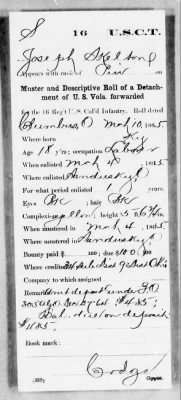 S 16 U.S.C.T.
Joseph Skelson
Appears with rank of Priv on
Muster and Descriptive Roll of a Detachment
of U. S. Vols. forwarded
for the 16 Reg't U.S. Col'd Infantry. Roll dated
Columbus, O Mch 10, 1865.
Where born Ky
Age 18 y'rs; occupation Laborer
When enlisted Mch 4, 1865.
Where enlisted Sandusky O
For what period enlisted 1 years.
Eyes Bk; hair Bk
Complexion yellow; height 5 ft.
When mustered in Mch 4, 1865.
Where mustered in Sandusky O
Bounty paid $ 100; due $100 100
Where credited
Company to which assigned
Remarks: Amt deposit under G.O.
305
Bal. due on deposit
Book mark:
Copyist.